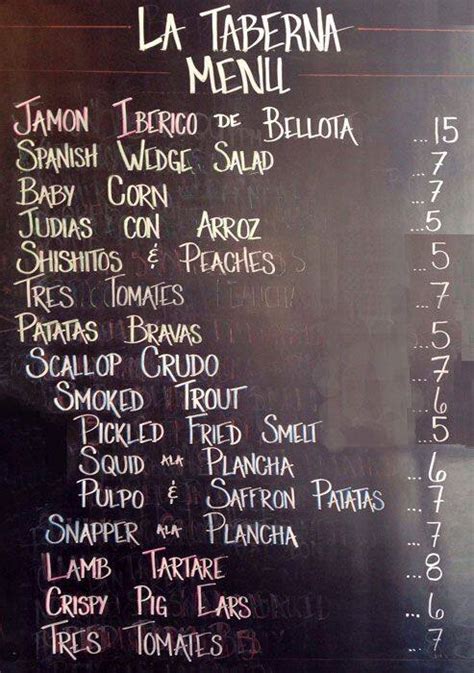 LA TABERNA
MENU
JAMON IBERICO DE BELLOTA ...15
SPANISH WEDGE SALAD ...7
BABY CORN ...7
JUDIAS CON ARROZ ...5
SHISHITOS & PEACHES ...5
TRES TOMATES ...7
PATATAS BRAVAS ...5
SCALLOP CRUDO ...7
SMOKED TROUT ...6
PICKLED FRIED SMELT ...5
SQUID ALA PLANCHA ...6
PULPO & SAFFRON PATATAS ...7
SNAPPER ALA PLANCHA ...7
LAMB TARTARE ...8
CRISPY PIG EARS ...6
TRES TOMATES ...7